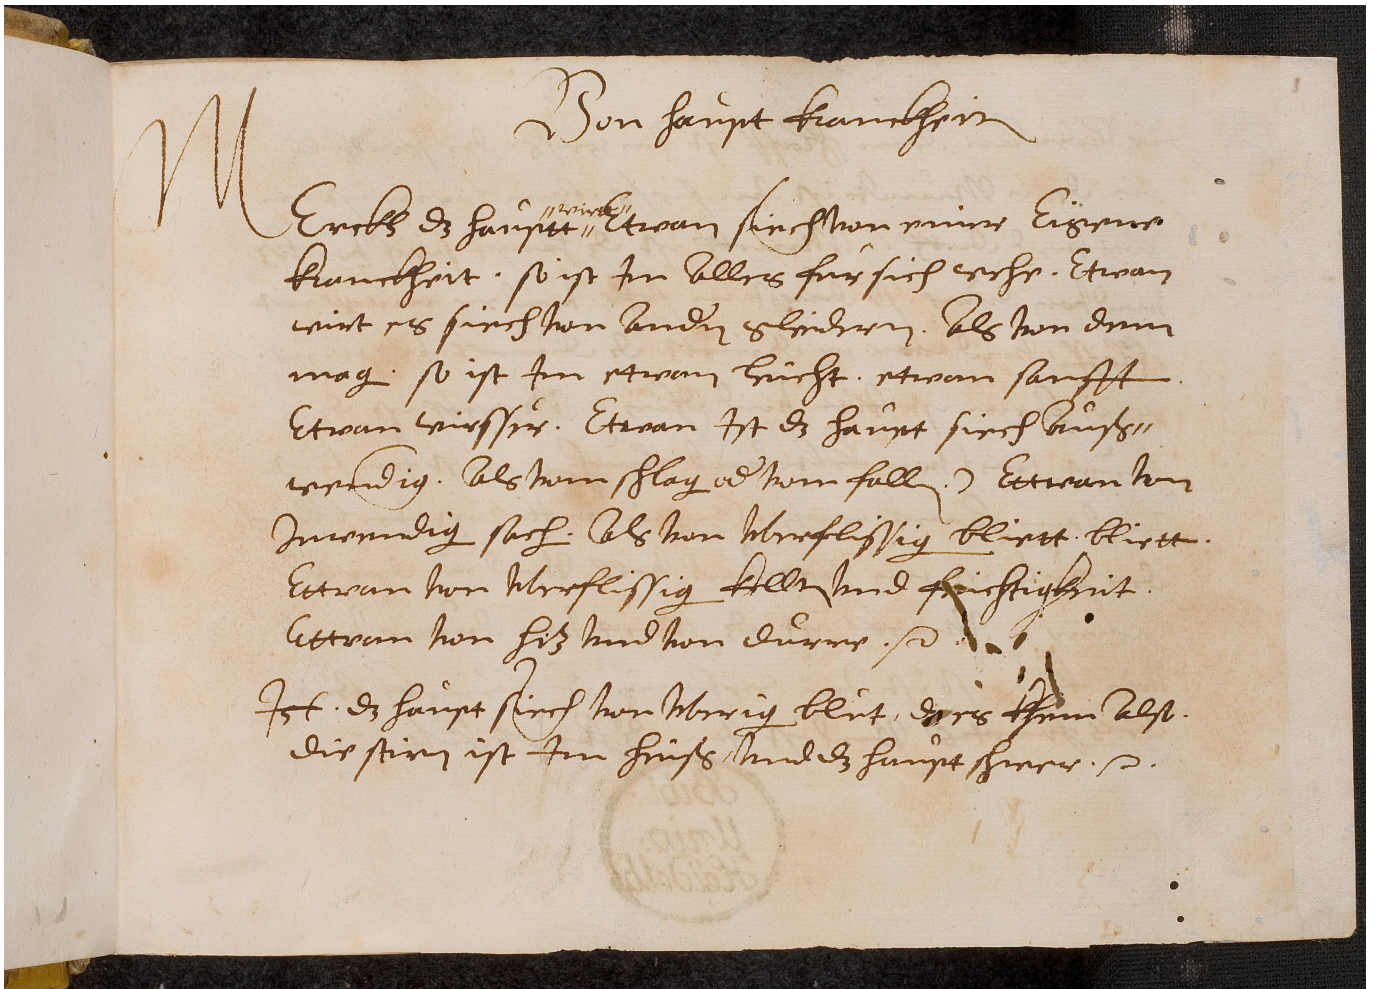 Von haupt kranckheit
MErckh dz hauptt wirt Ettwan siech von einer Eigene
kranckheit . so ist Im alles fur sich wehe . Etwan
wirt es siech von andern gliedern . als von dem
mag . so ist Im etwan leücht . etwan sanfft .
Etwan wirsser . Etwan Ist dz haupt siech auß„
wendig . als vom schlag oder vom fallen . Ettwan von
Inwendig sach . als von vberflissig bliett bliett .
Ettwan von vberflissig kellten vnd feichtigkeit .
Ettwan von hitz vnd von dürre .
Ist . dz haupt siech von vberig blut , dz es khem also .
die stirn ist Im heiß , vnd dz haupt schwer .
Bibl.
Univ.
Heidelb.